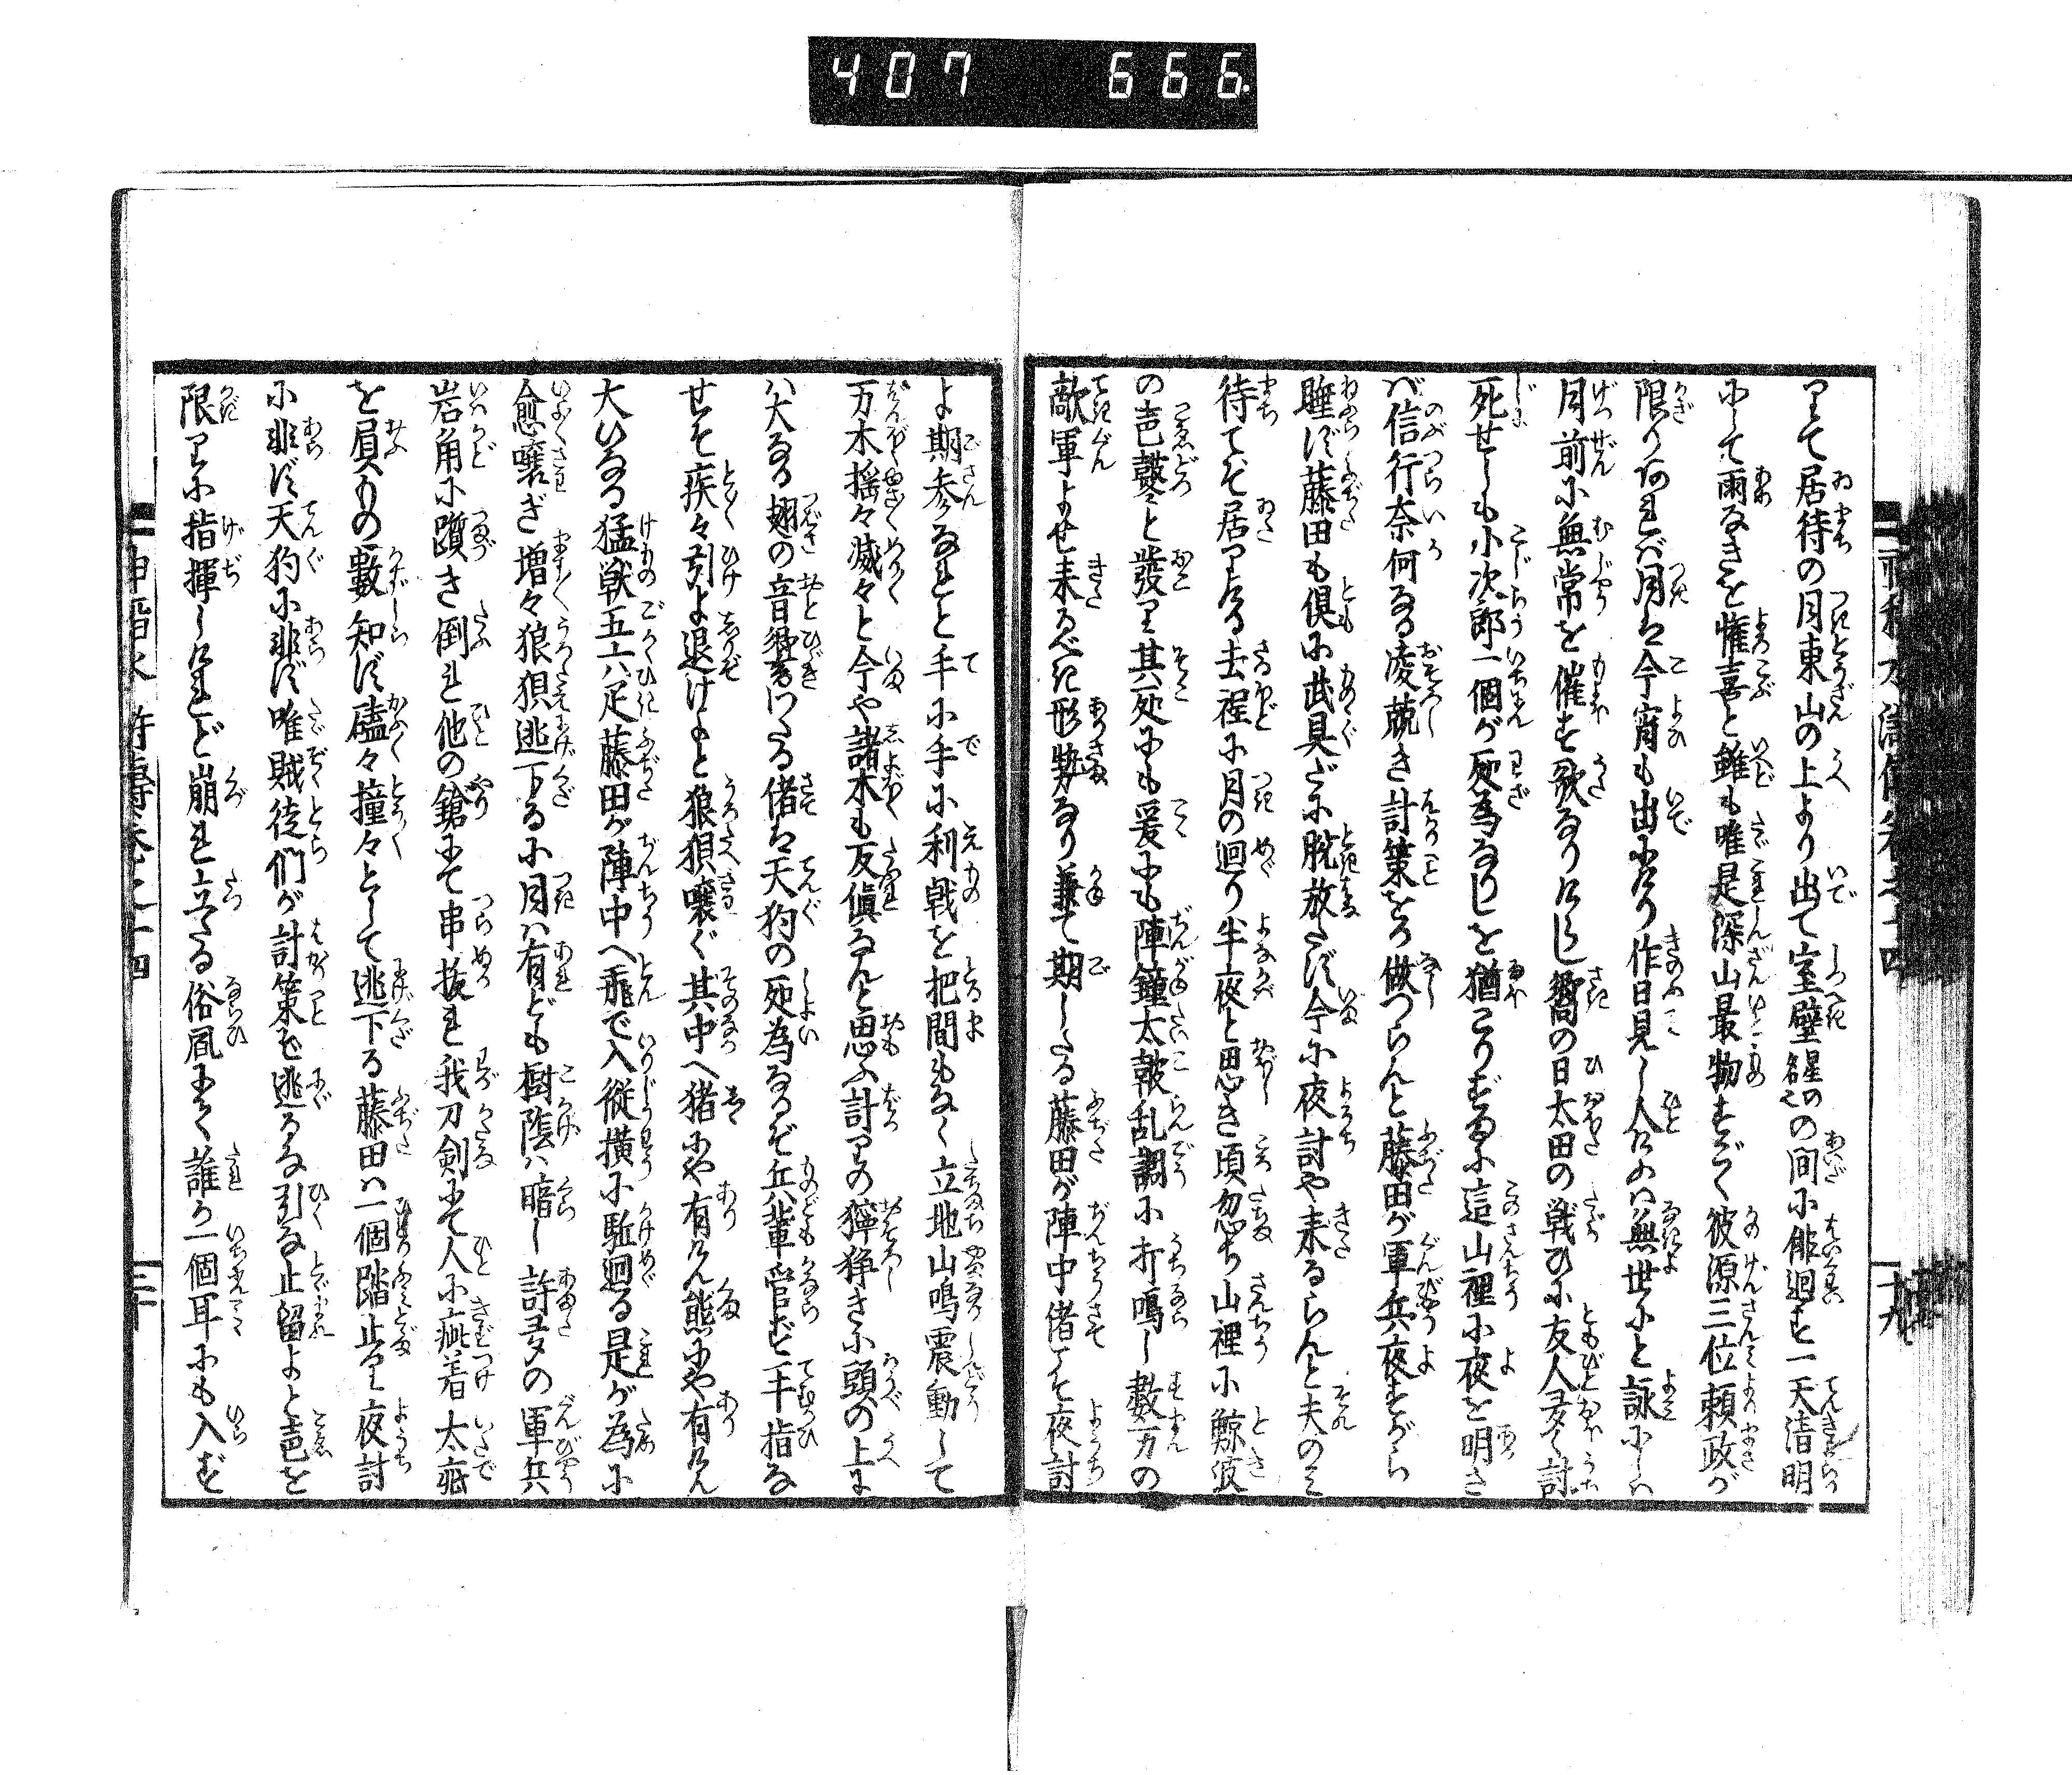 407 666
りて居待の月東山の上より出て室壁の間に俳廻す一天清明
にして雨なきを懽喜と雖も唯是深山最物すごく彼源三位頼政が
限りあれバ月は今宵も出にけり作日見し人ハ無世にと詠にしハ
月前に無常を催す歌なりけらし嚮の日太田の戦ひに友人多く討
死せしも小次郎一個が所為なりしを猶こりずまに這山裡に夜を明さ
バ信行奈何なる凌兢き計策をか做つらんと藤田が軍兵夜すがら
睡ず藤田も倶に武具だに脱放さず今に夜討や来るらんと夫のミ
待てぞ居りける去程に月の廻り半夜と思き頃忽ち山裡に鯨波
の声鼕と發り其処にも爰にも陣鐘太皷乱調に打鳴し数万の
敵軍よせ来るべき形勢なり兼て期したる藤田が陣中偖こそ夜討
よ期参なれと手に手に利戟を把間もなく立地山鳴震動して
万木揺々滅々と今や諸木も反傎なんと思ふ計りの獰猙き小頭の上に
ハ大なる翅の音響わたる偖は天狗の所為なるぞ兵輩必ず手指な
せそ疾々引よ退けよと狼狽嚷ぐ其中へ猪にや有けん熊にや有けん
大いなる猛獣五六疋藤田が陣中へ飛で入従横に駈廻る是が為に
愈嚷ぎ増々狼狽逃下るに月ハ有ども樹蔭ハ暗し許多の軍兵
岩角に躓き倒れ他の鎗にて串抜れ我刀剣にて人に疵着太疵
を負もの數知ず磕々撞々として逃下る藤田ハ一個踏止り夜討
に非ず天狗に非ず唯賊徒們が計策ぞ逃るな引な止留よと声を
限りに指揮しけれど崩れ立たる俗風にて誰か一個耳にも入ず